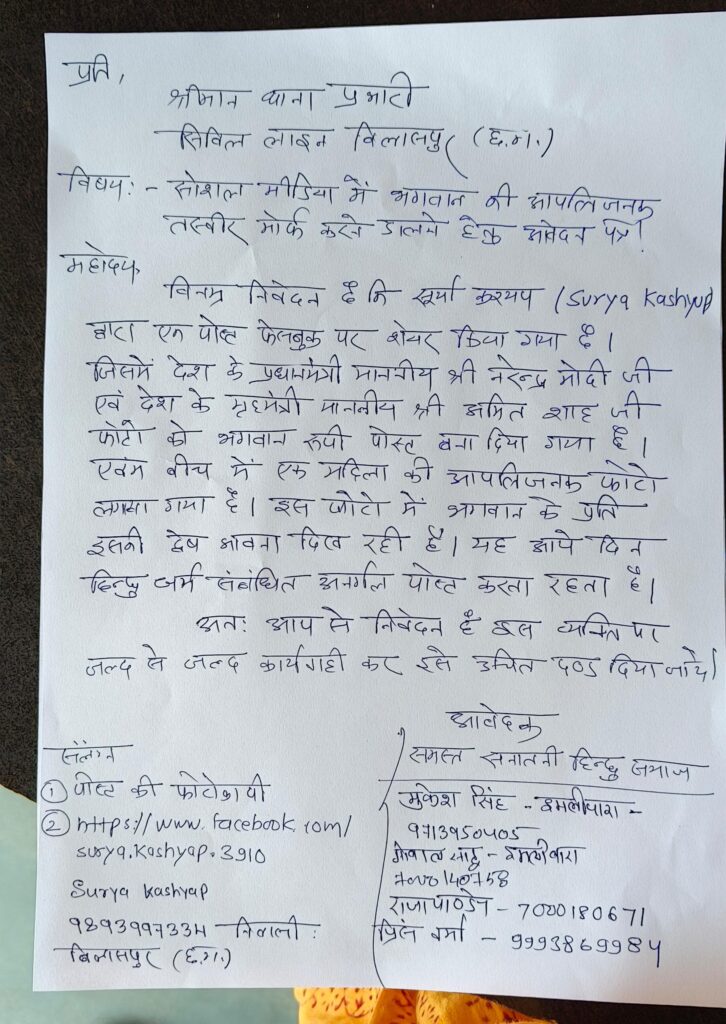 प्रति,
श्रीमान थाना प्रभारी
सिविल लाइन बिलासपुर (छ.ग.)
विषय:- सोशल मीडिया में भगवान की आपत्तिजनक
तस्वीर मोर्फ करके डालने हेतु आवेदन पत्र।
महोदय,
विनम्र निवेदन है कि सूर्या कश्यप (Surya Kashyap)
द्वारा एक पोस्ट फेसबुक पर शेयर किया गया है।
जिसमें देश के प्रधानमंत्री माननीय श्री नरेन्द्र मोदी जी
एवं देश के गृहमंत्री माननीय श्री अमित शाह जी
फोटो को भगवान रूपी पोस्ट बना दिया गया है।
एवंम बीच में एक महिला की आपत्तिजनक फोटो
लगाया गया है। इस फोटो में भगवान के प्रति
इसकी द्वेष भावना दिख रही है। यह आये दिन
हिन्दु धर्म संबंधित अनर्गल पोस्ट करता रहता है।
अतः आप से निवेदन है इस व्यक्ति पर
जल्द से जल्द कार्यवाही कर इसे उचित दण्ड दिया जाये।
आवेदक
समस्त सनातनी हिन्दु समाज
मुकेश सिंह - इमलीपारा -
9713950405
साहू - इमलीपारा
राजा पाण्डेय - 7000180671
प्रिंस वर्मा - 9993869984
संलग्न
① पोस्ट की फोटोकापी
② https://www.facebook.com/
surya.kashyap.3910
Surya Kashyap
निवासी :
बिलासपुर (छ.ग.)